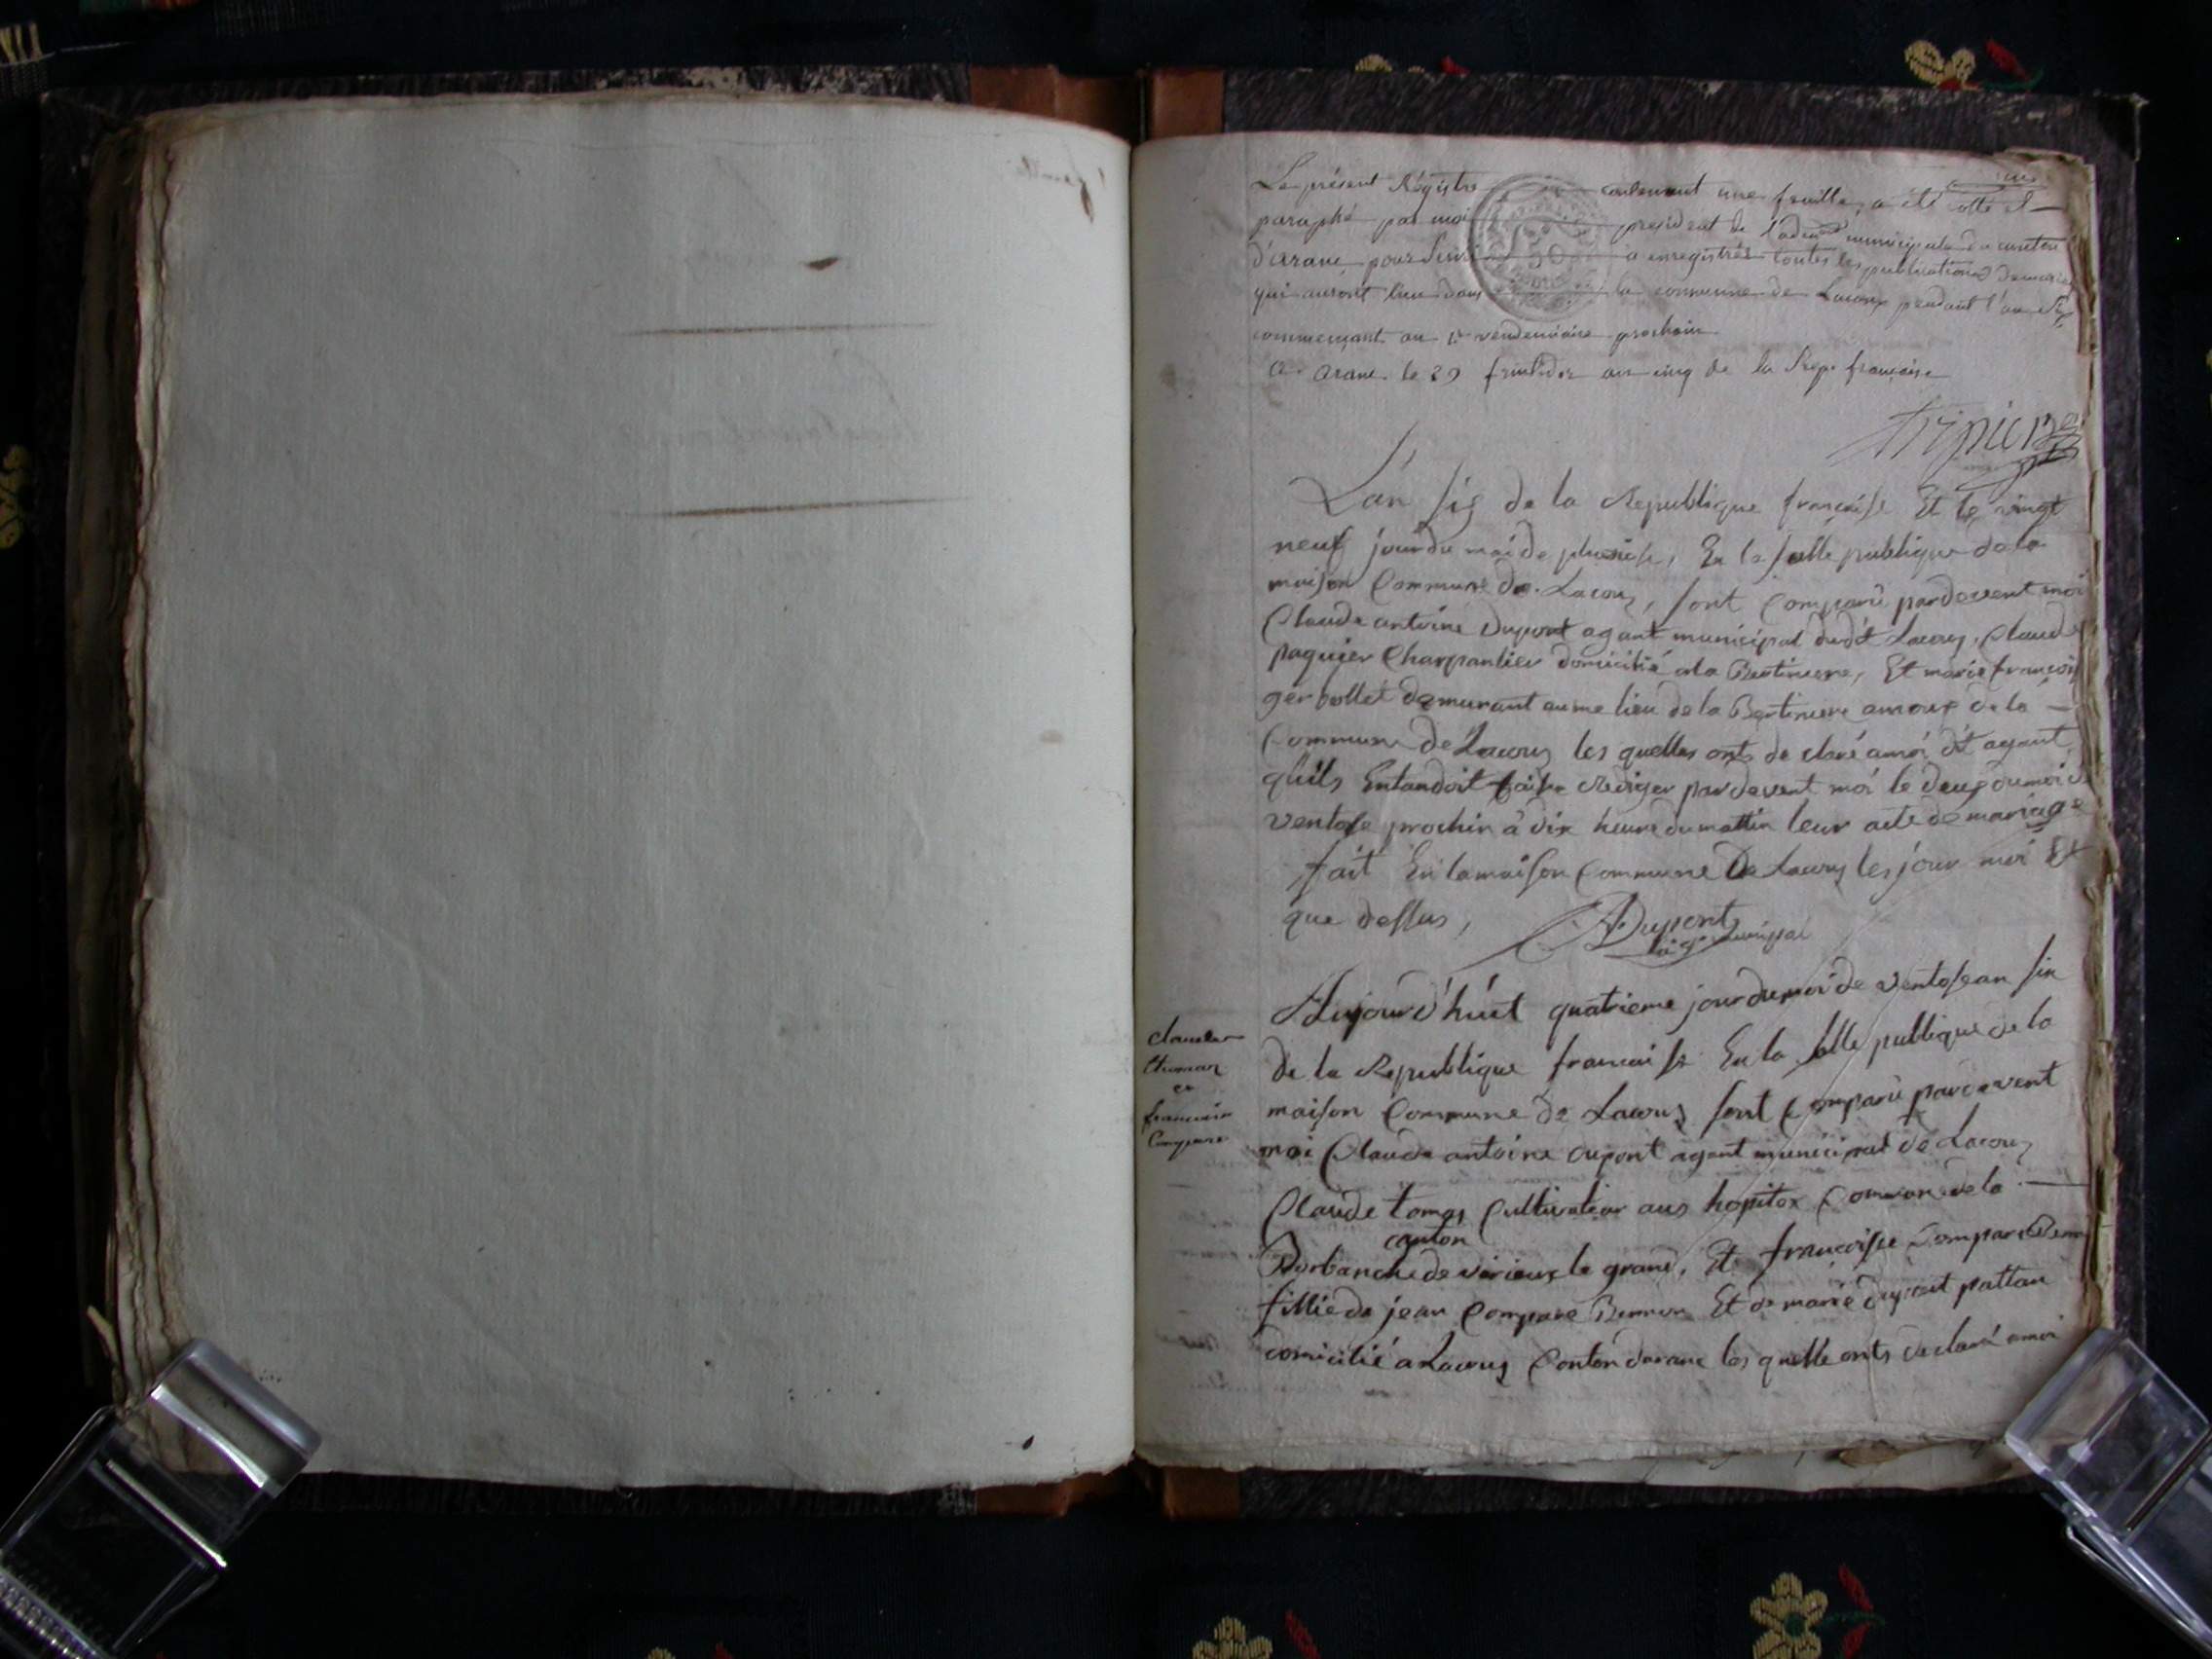 Le présent Régistre contenant une feuille, a été cotté et
paraphé par moi président de l'adm municipale du canton
d'aranc, pour servir a enregistrer toutes les publications de mariage
qui auront lieu dans la commune de Lacoux pendant l'an six
commençant au 1er vendemiaire prochain
a aranc le 29 fructidor an cinq de la Rep. française
L'an six de la Republique françaisse Et le vingt
neuf jour du moi de pluviose, En la salle publique de la
maison Commune de Lacoux, sont Comparû pardevent moi
Claude antoine Dupont agant municipal dudt Lacoux, Claude
paquier Charpantier domicilié a la Bertiniere, Et marie françois
gerbollet demurant aume lieu de la Bertiniere amoux de la
Commune de Lacoux les quelles onts de claré a moi dt agant
quils Entandoit faire Rediger pardevent moi le deux du moi de
ventose prochin à dix heure du mattin leur acte de mariage
fait En la maison Commune De Lacoux les jour moi Et
que dessus, ADupont
agt municipal
Aujourd'huit quatrieme jour du moi de ventose an six
de la Republique francaisse En la salle publique de la
maison Commune de Lacoux sont Comparû pardevent
moi Claude antoine dupont agent municipal de Lacoux
Claude tomas Cultivateur aux hopitox Commune de la
canton
Borbanche de virieux le grand, Et françoise Compare
fillie de jean Compare Et de marie dupont
domicilié a Lacoux Conton daranc les quelle onts declaré a moi
claude
thomas
et
francoise
Compare